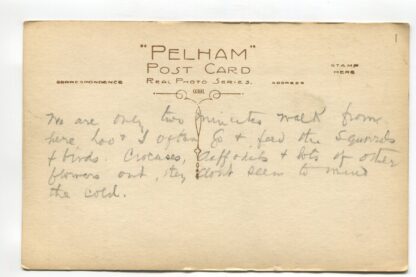 "PELHAM"
POST CARD
REAL PHOTO SERIES.
CORRESPONDENCE
ADDRESS
STAMP
HERE
1
We are only two minutes walk from
here, & I often go & feed the Squirrels
& birds. Crocuses, daffodils & lots of other
flowers out, they dont seem to mind
the cold.